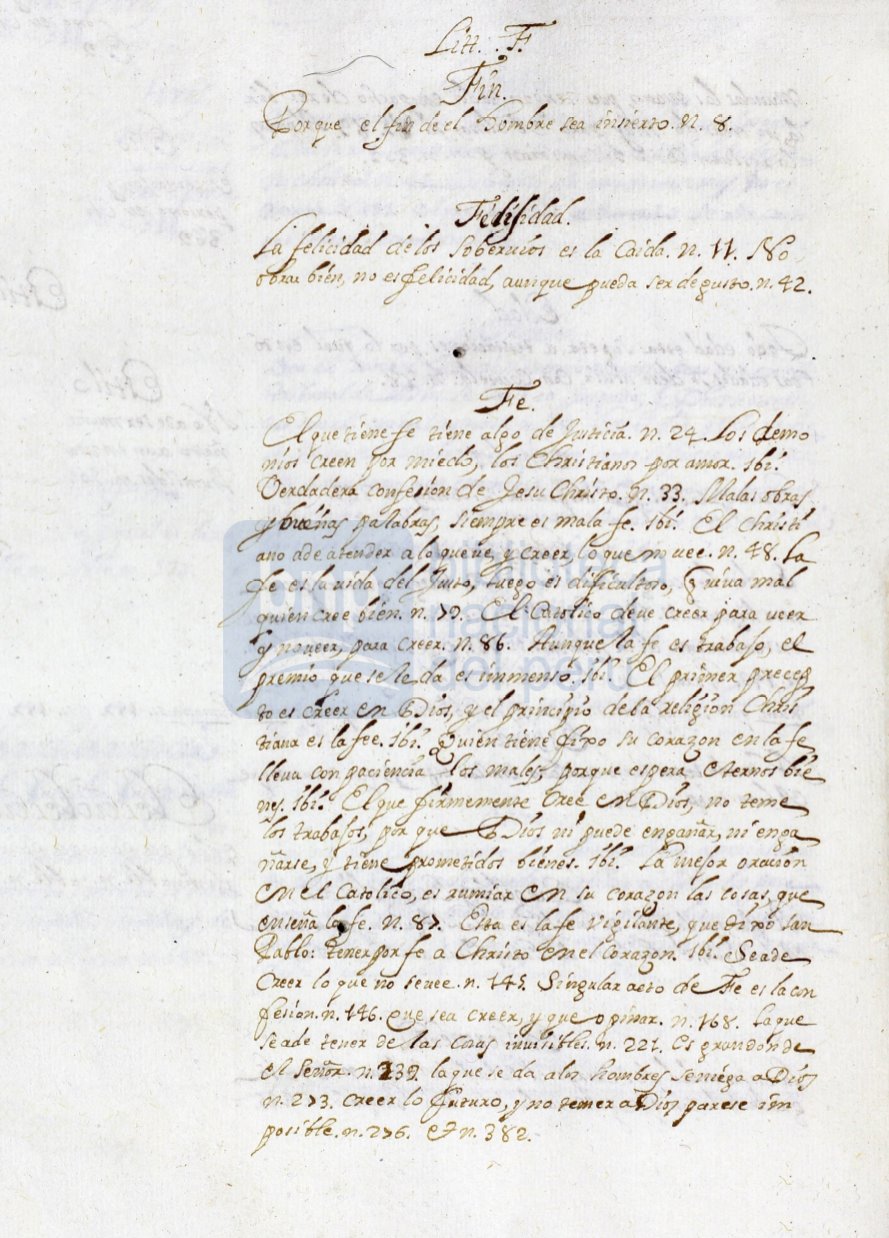 Litt. F.
Fin.
Porque el fin de el hombre sea insierto. n. 8.
Felisidad.
La felicidad de los soberuios es la Caida. n. 11. No
obrar bien, no es felicidad, aunque pueda ser de gusto. n. 42.
Fe.
El que tiene fe tiene algo de Justicia. n. 24. Los demo
nios creen por miedo, los Christianos por amor. Ibi.
Verdadera confesion de Jesu Christo. n. 33. Malas obras
y buenas palabras, siempre es mala fe. Ibi. El Christi
ano a de atender a lo que ve, y creer, lo que no vee. n. 48. La
fe es la uida del Justo, luego es dificultoso, q̃ uiua mal
quien cree bien. n. 79. El Catolico deue creer para ueer
y no ueer, para creer. n. 86. Aunque la fe es trabajo, el
premio que se le da es immenso. Ibi. El primer precep
to es creer en Dios, y el principio de la religion Chris
tiana es la fee. Ibi. Quien tiene fixo su corazon en la fe
lleua con paciencia los males, porque espera eternos bie
nes. Ibi. El que firmemente Cree en Dios, no teme
los trabajos, por que Dios ni puede engañar, ni enga
ñarse, y tiene prometidos bienes. Ibi. La mejor oracion
en el Catolico, es rumiar en su corazon las cosas, que
enseña la fe. n. 87. Esta es la fe vigilante, que dixo san
Pablo: tener por fe a Christo en el Corazon. Ibi. Se a de
Creer lo que no se vee. n. 145. Singular acto de Fe es la con
fesion. n. 146. Que sea creer, y que opinar. n. 168. La que
se a de tener de las cosas inuisibles. n. 221. Es gran don de
el Señor. n. 239. la que se da a los hombres se niega a Dios
n. 273. Creer lo futuro, y no temer a Dios parese im
posible. n. 276. et n. 382.
biblioteca
nacional
del perú